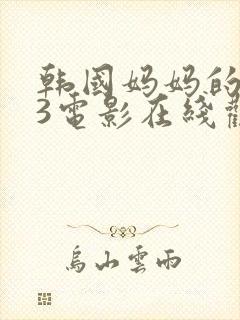 韩國妈妈的
3電影在綫
烏山雲雨